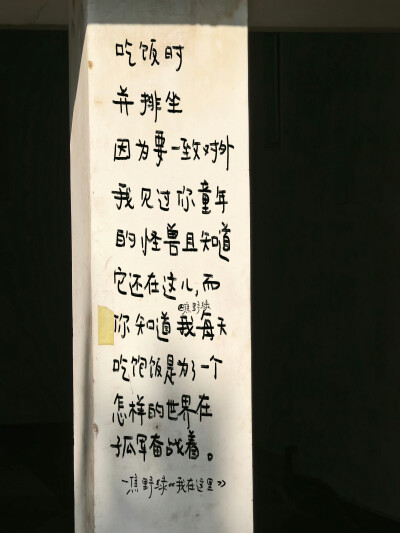 吃饭时
并排坐
因为要一致对外
我见过你童年
的怪兽且知道
它还在这儿,而
@焦野绿
你知道我每天
吃饱饭是为了一个
怎样的世界在
孑孤军奋战着。
—焦野绿《我在这里》